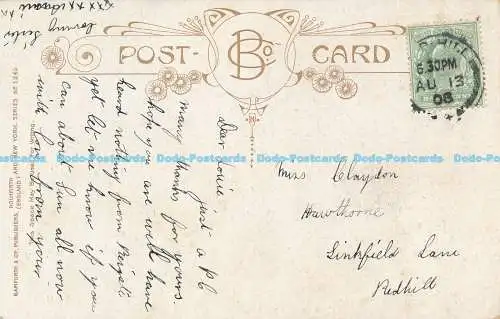 POST CARD
B Co.
REDHILL
6.30PM
AU 13
06
Dear Louie just a P.C
many thanks for yours.
hope you are well have
heard nothing from Reigate
yet let me know if you
can about Sun all now
with love from your
loving Sister
xxx
Miss Claydon
Hawthorne
Linkfield Lane
Redhill
BAMFORTH & CO., PUBLISHERS, HOLMFIRTH (ENGLAND) AND NEW YORK. SERIES NO
Dodo-Postcards Dodo-Postcards Dodo-Postcards Dodo-Postcards Dodo-Postcards Dodo-Postcards